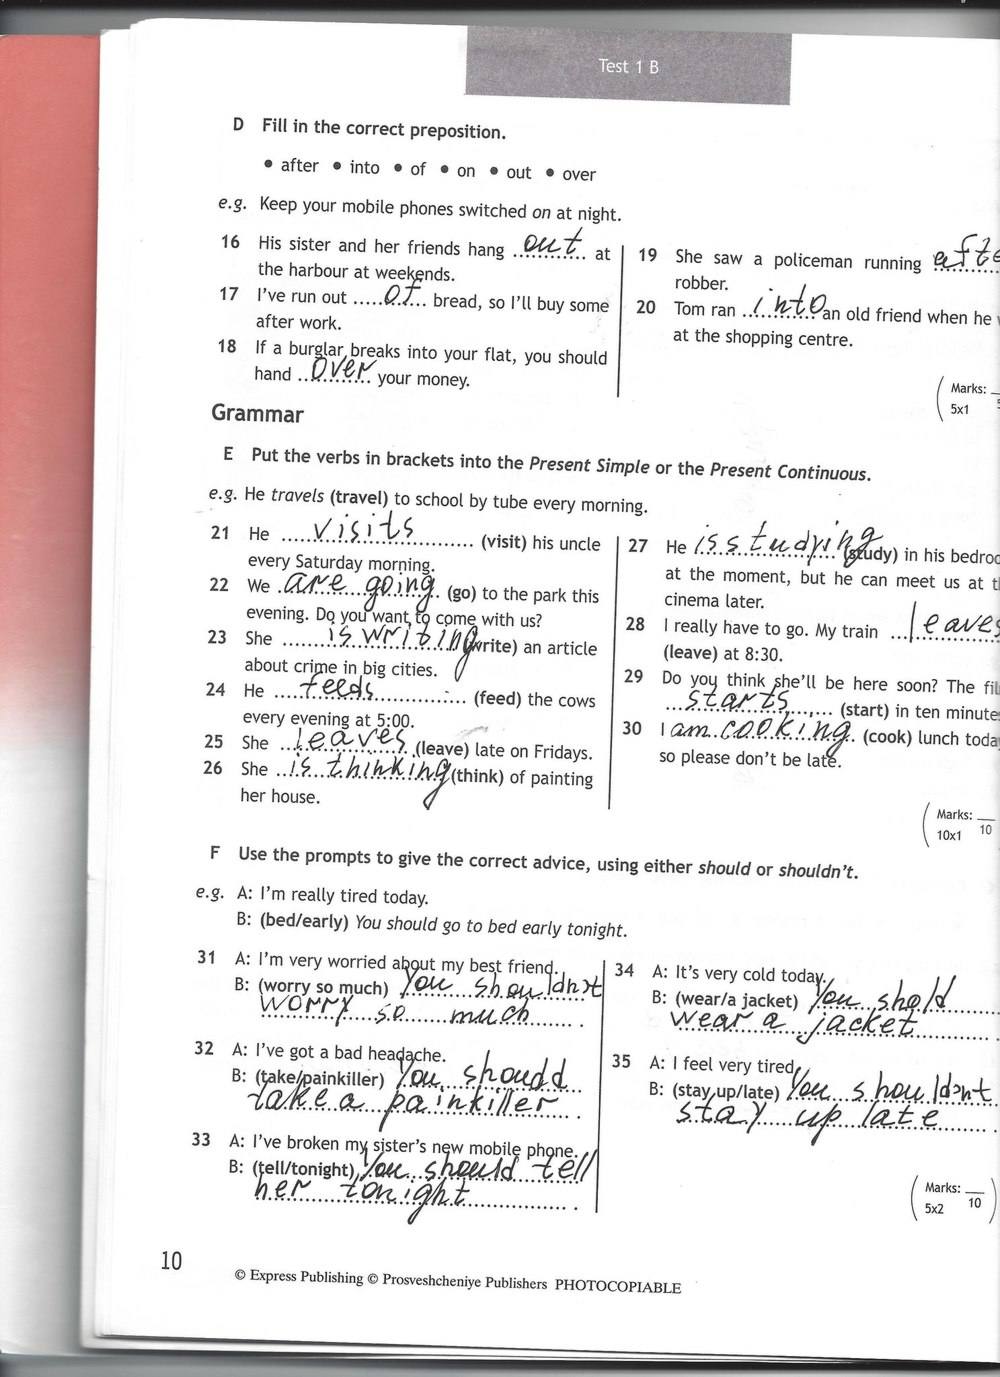 Test 1 B
D Fill in the correct preposition.
• after • into • of • on • out • over
e.g. Keep your mobile phones switched on at night.
16 His sister and her friends hang out at
the harbour at weekends.
17 I've run out of bread, so I'll buy some
after work.
18 If a burglar breaks into your flat, you should
hand over your money.
19 She saw a policeman running afte
robber.
20 Tom ran into an old friend when he
at the shopping centre.
Marks:
5x1
Grammar
E Put the verbs in brackets into the Present Simple or the Present Continuous.
e.g. He travels (travel) to school by tube every morning.
21 He visits (visit) his uncle
every Saturday morning.
22 We are going (go) to the park this
evening. Do you want to come with us?
23 She is writing (write) an article
about crime in big cities.
24 He feeds (feed) the cows
every evening at 5:00.
25 She leaves (leave) late on Fridays.
26 She is thinking (think) of painting
her house.
27 He is studying (study) in his bedroo
at the moment, but he can meet us at t
cinema later.
28 I really have to go. My train leaves
(leave) at 8:30.
29 Do you think she'll be here soon? The fil
starts (start) in ten minute
30 I am cooking (cook) lunch toda
so please don't be late.
Marks:
10x1 10
F Use the prompts to give the correct advice, using either should or shouldn't.
e.g. A: I'm really tired today.
B: (bed/early) You should go to bed early tonight.
31 A: I'm very worried about my best friend.
B: (worry so much) You shouldn't
worry so much .
32 A: I've got a bad headache.
B: (take/painkiller) You shoudd
take a painkiller .
33 A: I've broken my sister's new mobile phone.
B: (tell/tonight) You should tell
her tonight .
34 A: It's very cold today.
B: (wear/a jacket) You shold
wear a jacket .
35 A: I feel very tired.
B: (stay up/late) You shouldn't
stay up late .
Marks:
5x2 10
10
© Express Publishing © Prosveshcheniye Publishers PHOTOCOPIABLE